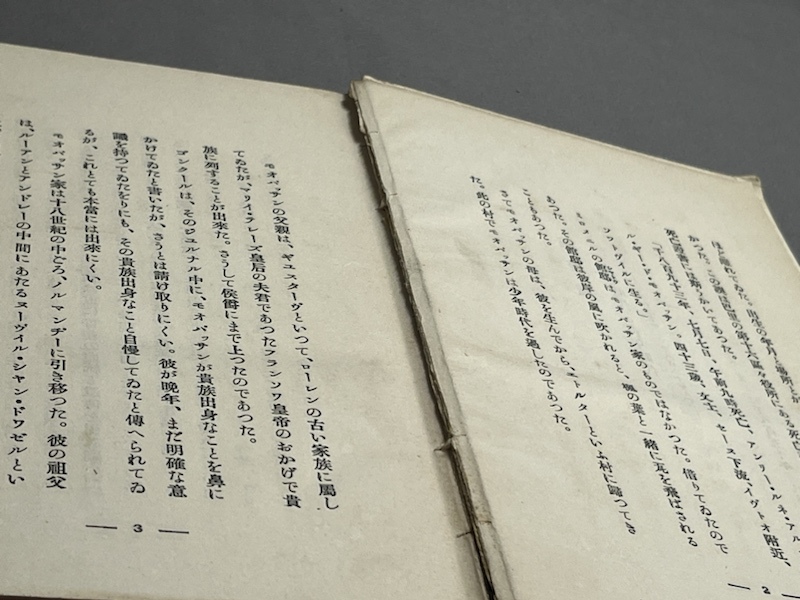 ほど離れてゐた。出生の年月と場所
かつた。この國は巴里の第十六區の役所にある死亡
死亡證書には斯うかいてあつた。
「千八百九十三年、七月七日、午前九時死亡、アンリー・ルネ・アル
ル・ギ・ード・モオパッサン、四十三歳、文士、セーヌ下流、イヴトオ附近、
ソットヴイルに生る。」
ミロメルの館邸はモオパッサン家のものではなかつた。借りてゐたので
あつた。その館邸は彼岸の風に吹かれると、楓の葉と一緒に瓦を飛ばされる
こともあつた。
さてモオパッサンの母は、彼を生んでから、エトルターといふ村に歸つてき
た。此の村でモオパッサンは少年時代を過したのであつた。
2
モオパッサンの父親は、ギュスターヴといつて、ローレンの古い家族に屬し
てゐたが、マリイ・テレーズ皇后の夫君であつたフランソワ皇帝のおかげで貴
族に列することが出來た。さうして侯爵にまで上つたのであつた。
ゴンクールは、そのジュルナル中に、モオパッサンが貴族出身なことを鼻に
かけてゐたと書いたが、さうとは請け取りにくい。彼が晩年、まだ明確な意
識を持つてゐたをりにも、その貴族出身なこと自慢してゐたと傳へられてゐ
るが、これとても本當には出來にくい。
モオパッサン家は十八世紀の中ごろ、ノルマンヂーに引き移つた。彼の祖父
は、ルーアンとアンドレーの中間にあたるヌーヴイル・シャン・ドワゼルとい
3